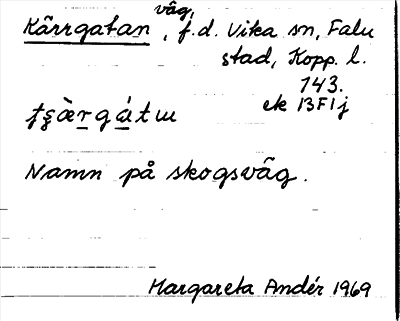 Kärrgatan väg, f.d. Vika sn, Falu
stad, Kopp. l.
143.
ek 13F1j
Namn på skogsväg.
Margareta Andér 1969